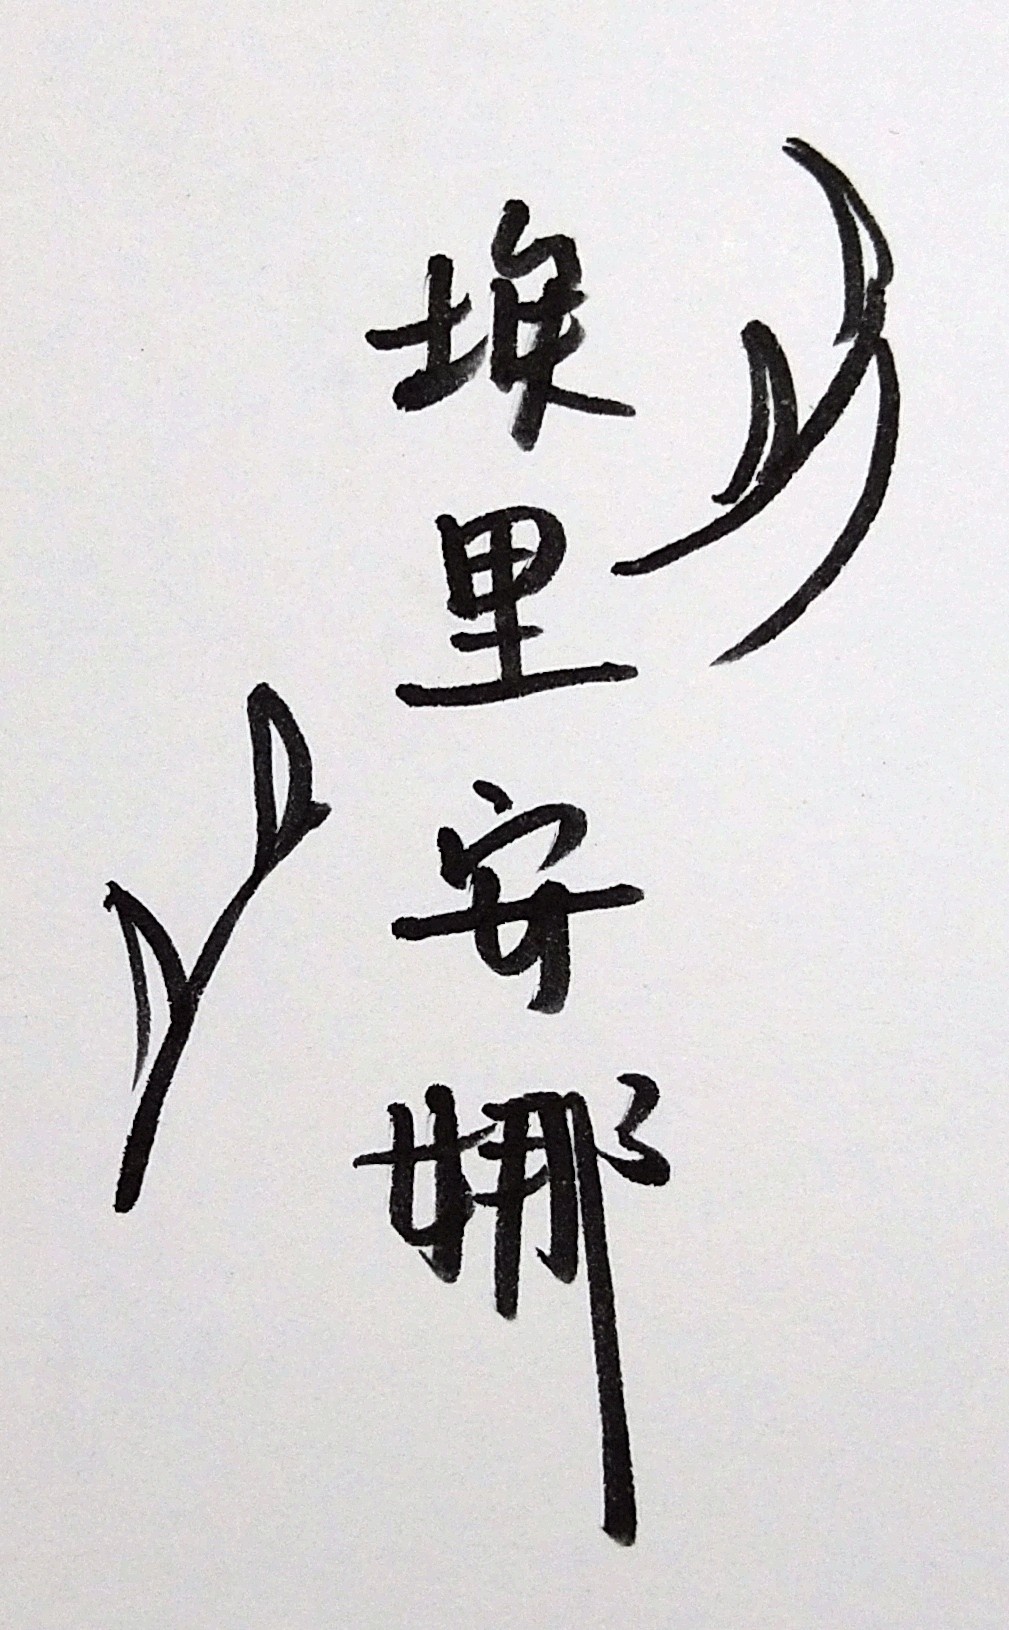 埃里安娜